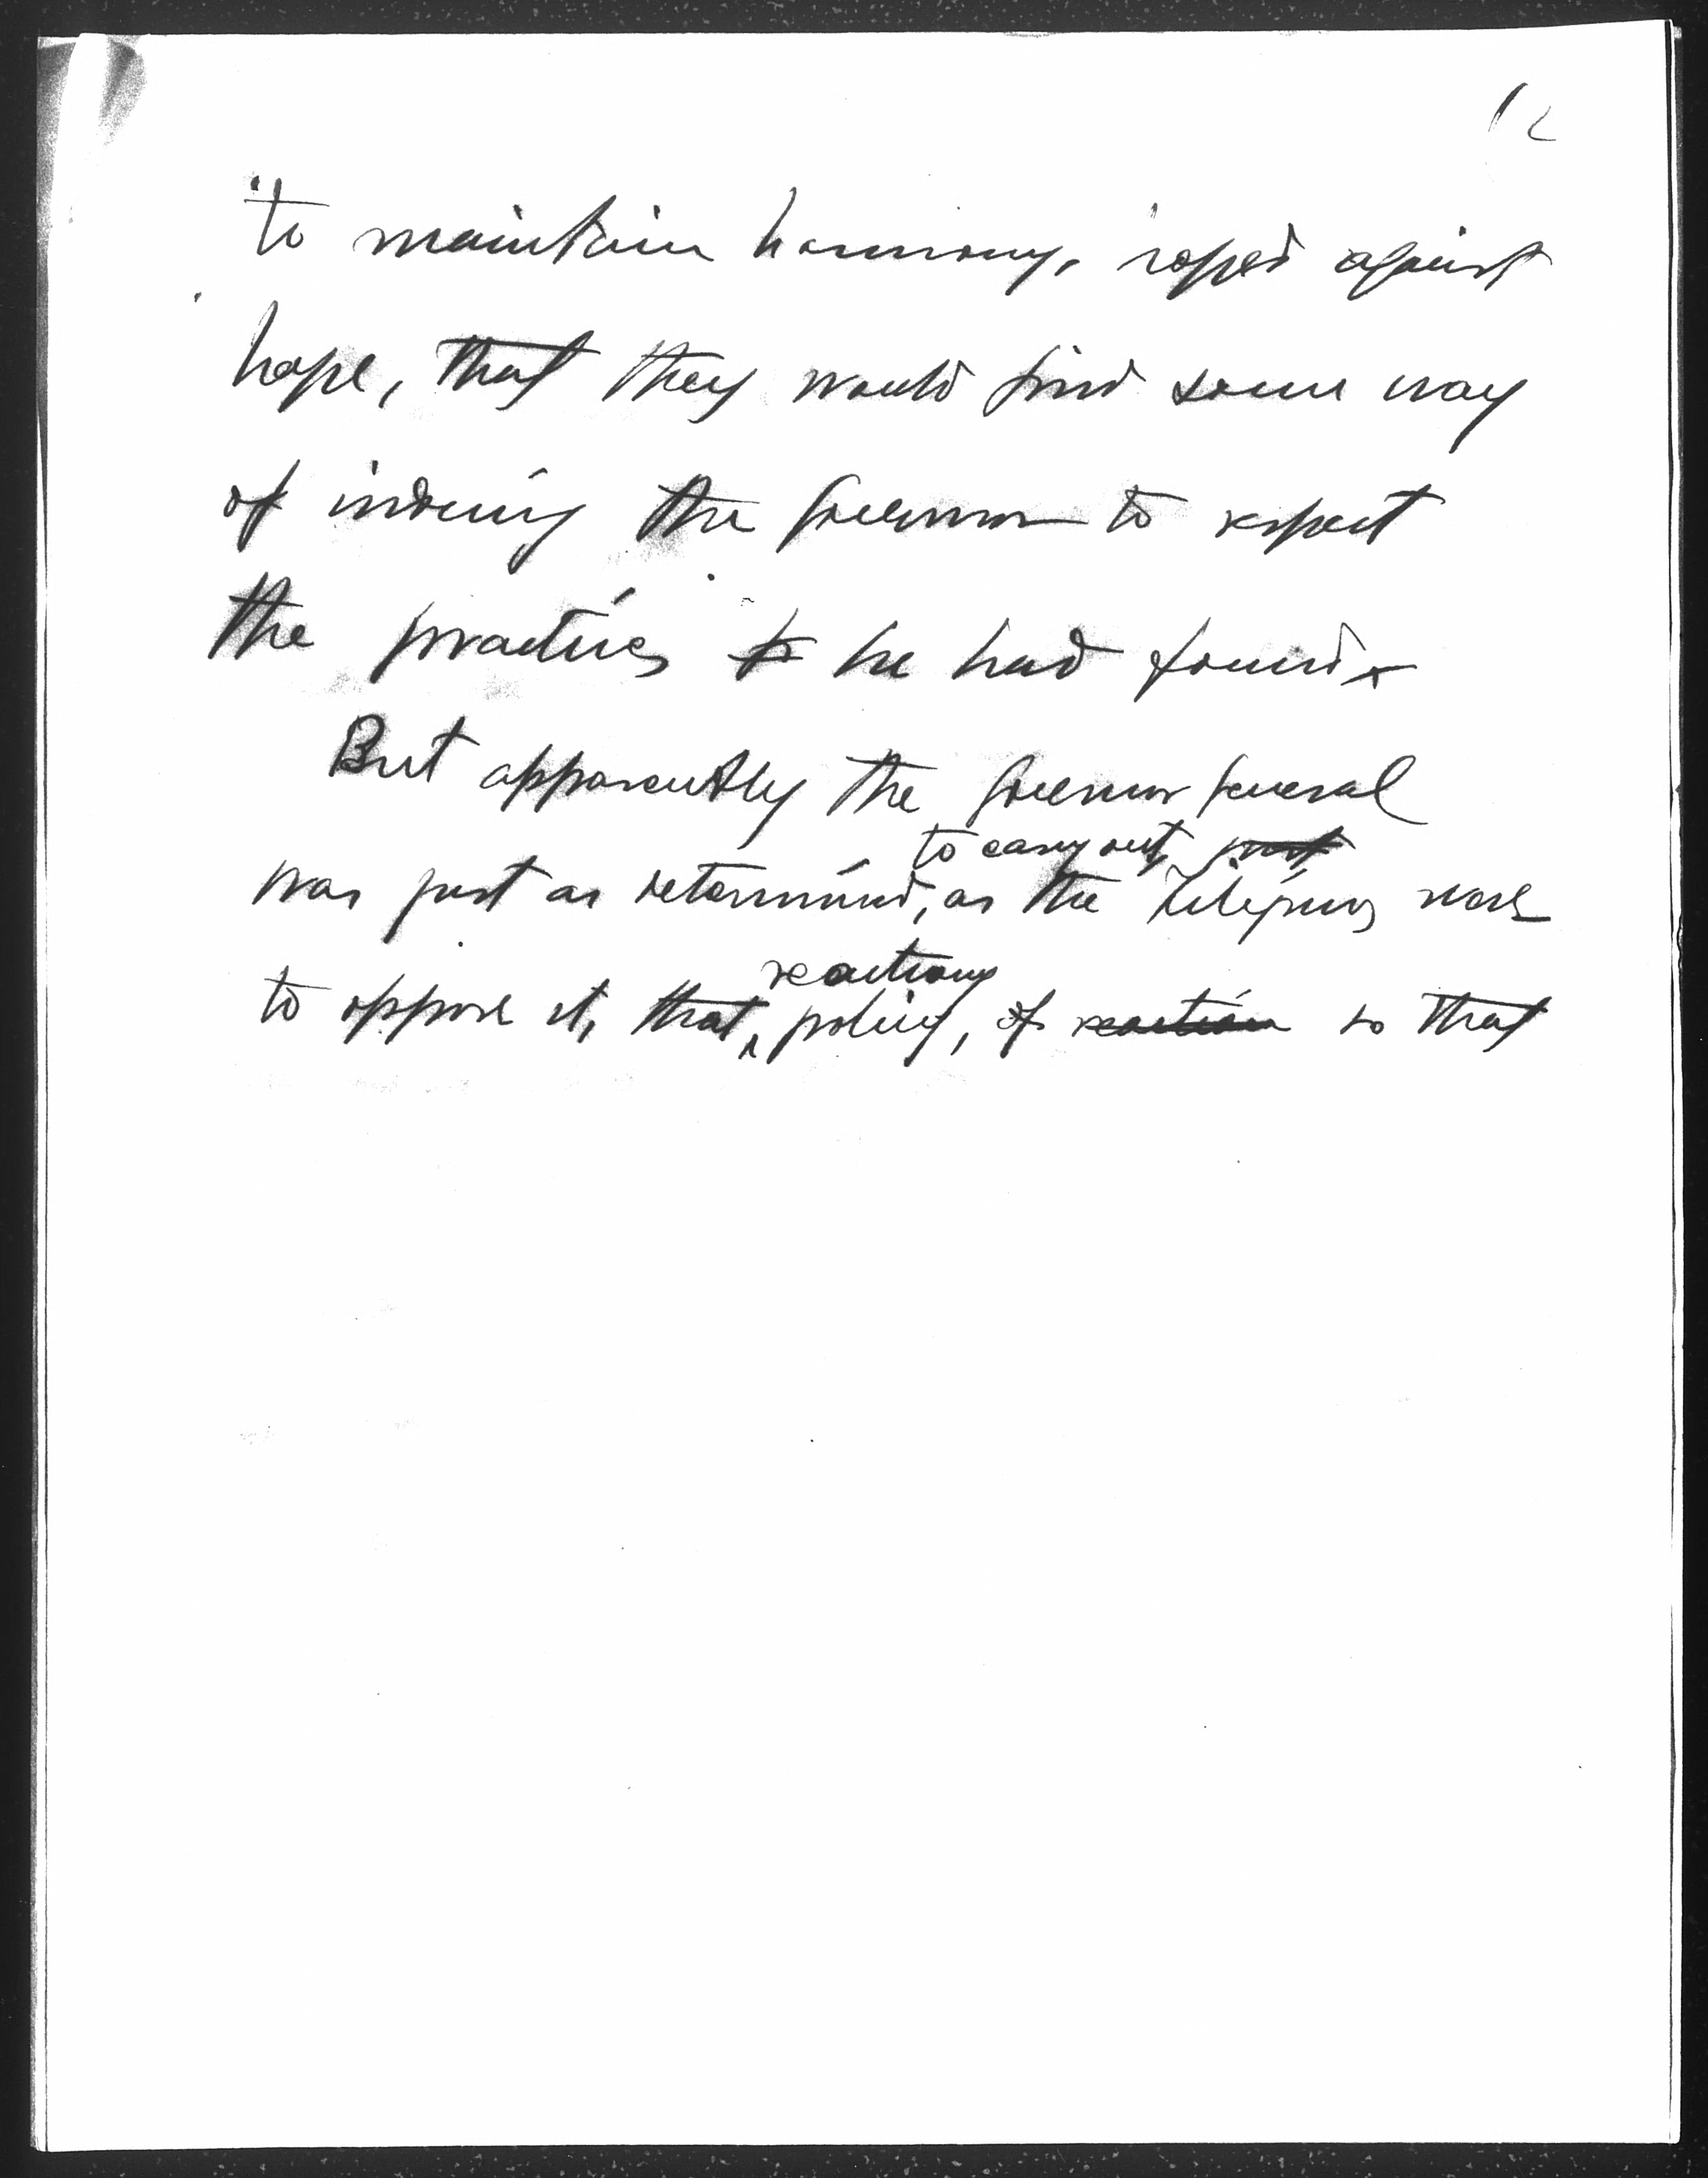 12
to maintain harmony, hoped against
hope, that they would find some way
of inducing the Governor to respect
the practices to he had found.
But apparently the Governor General
to carry out
was just as determined, as the Filipinos were
reactionary
to oppose it, that policy, of reaction so that